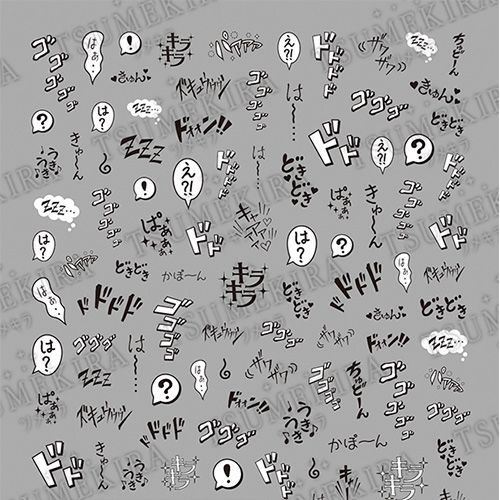 ゴゴゴ
はぁ…
!
キラキラ
パァァァ
え?!
ドドド
ザワザワ
zzz…
ちゅどーん
♥きゅん♥
ドキュウゥゥン
は…
ゴゴゴ
きゅん♥
?
は?
zzz…
ドォォン!!
どきどき
うきうき♪
きゅーん
zzz
え?!
ゴゴゴゴ
は…
どきどき
ドドド
え?!
?
zzz…
ゴゴゴゴ
!
ぱぁぁぁ
キャーァァ♥
は?
きゅ〜ん
ゴゴゴゴ
うきうき♪
は?
パァァァ
どきどき
かぽーん
ドド
キラキラ
どきどき
ドドド
はぁ…
どきどき
はぁ…
ドドドド
ゴゴゴゴ
ドキュウゥゥン
ぱぁぁぁ
!
♥きゅん♥
は?
ゴゴゴ
は…
ザワザワ
ドキュウゥゥン
ドォォン!!
zzz…
zzz
?
はぁ…
ザワザワ
?
ちゅどーん
ゴゴゴゴ
パァァァ
ぱぁぁぁ
ドキュウゥゥン
ドドド
ゴゴゴ
うきうき♪
かぽ〜ん
ゴゴゴ
ドド
きゅーん
うきうき♪
キラキラ
!
ゴゴゴ
は…
キャーァァ♥
どきどき
TSUMEKIRA
ツメキラ